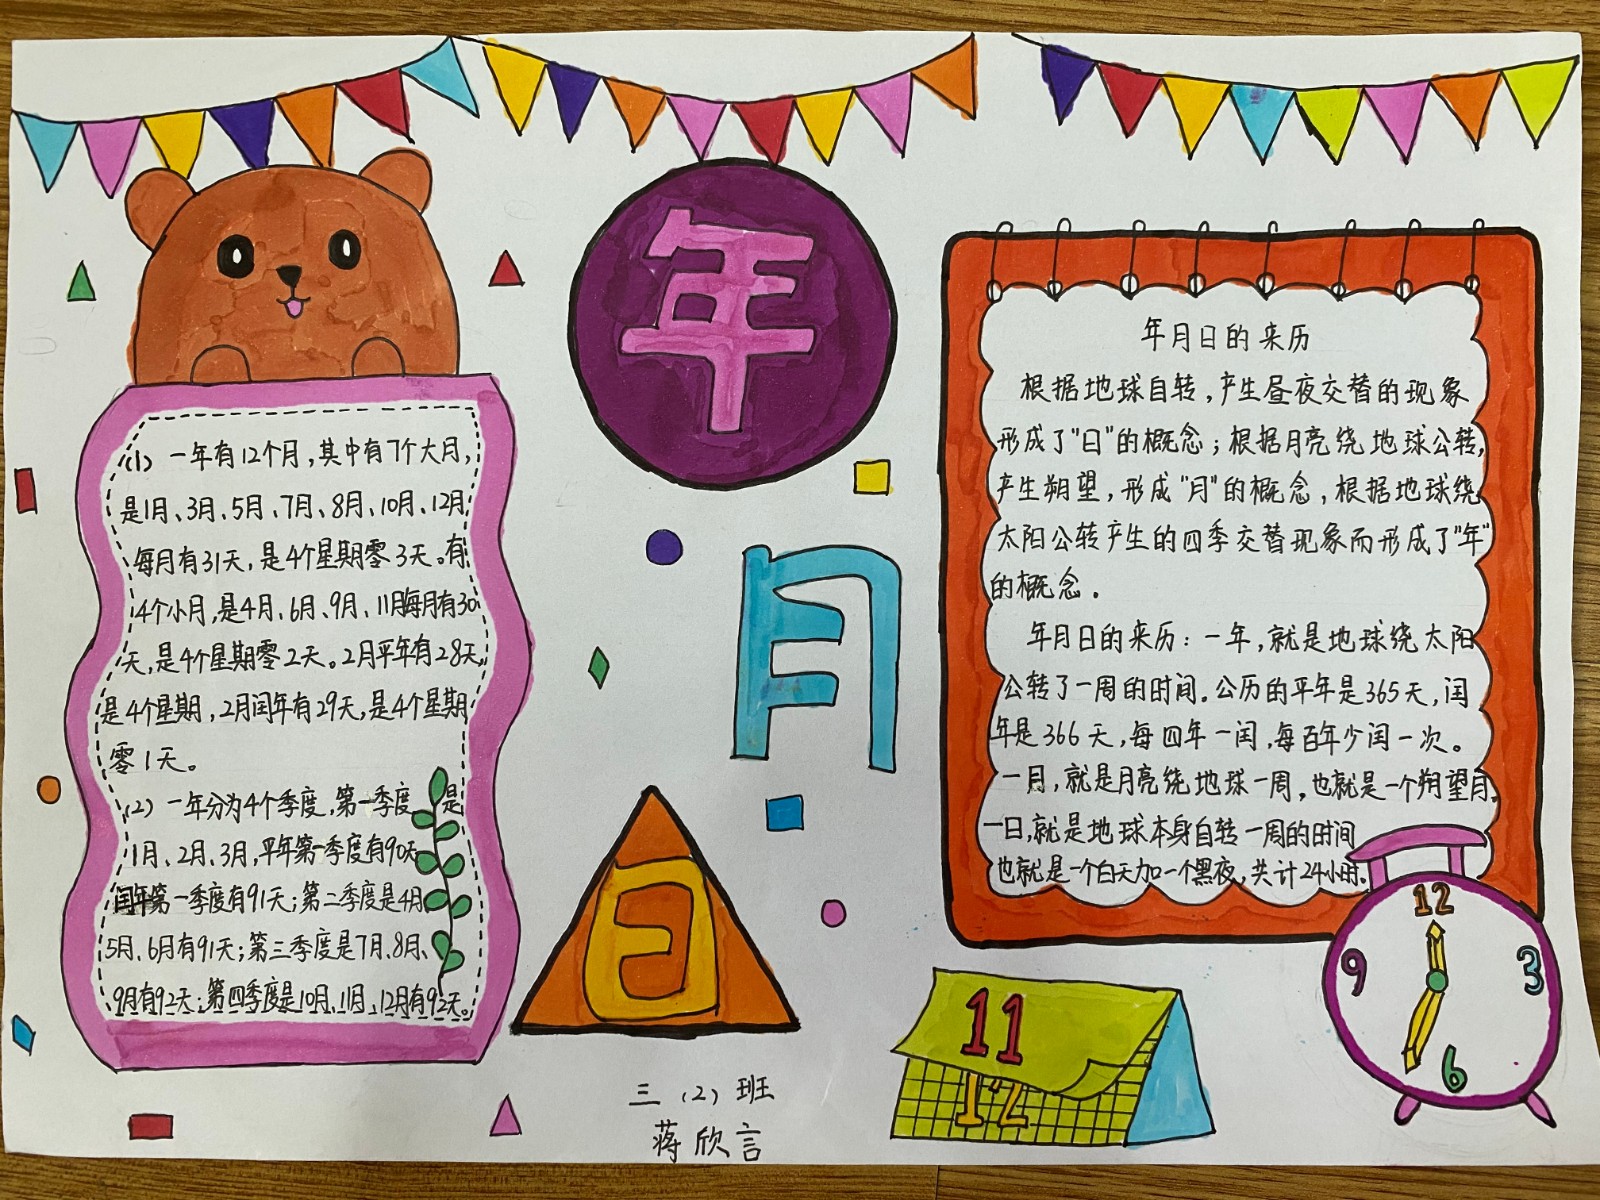 年
月
日
(1) 一年有12个月,其中有7个大月,
是1月、3月、5月、7月、8月、10月、12月
每月有31天,是4个星期零3天。有
4个小月,是4月、6月、9月、11月每月有30
天,是4个星期零2天。2月平年有28天,
是4个星期,2月闰年有29天,是4个星期
零1天。
(2) 一年分为4个季度,第一季度是
1月、2月、3月,平年第一季度有90天
闰年第一季度有91天;第二季度是4月、
5月、6月有91天;第三季度是7月、8月、
9月有92天;第四季度是10月、11月、12月有92天。
年月日的来历
根据地球自转,产生昼夜交替的现象
形成了"日"的概念;根据月亮绕地球公转,
产生朔望,形成"月"的概念,根据地球绕
太阳公转产生的四季交替现象而形成了"年"
的概念.
年月日的来历:一年,就是地球绕太阳
公转了一周的时间.公历的平年是365天,闰
年是366天,每四年一闰,每百年少闰一次。
一月,就是月亮绕地球一周,也就是一个朔望月.
一日,就是地球本身自转一周的时间
也就是一个白天加一个黑夜,共计24小时.
11
12
12
3
6
9
三(2)班
蒋欣言